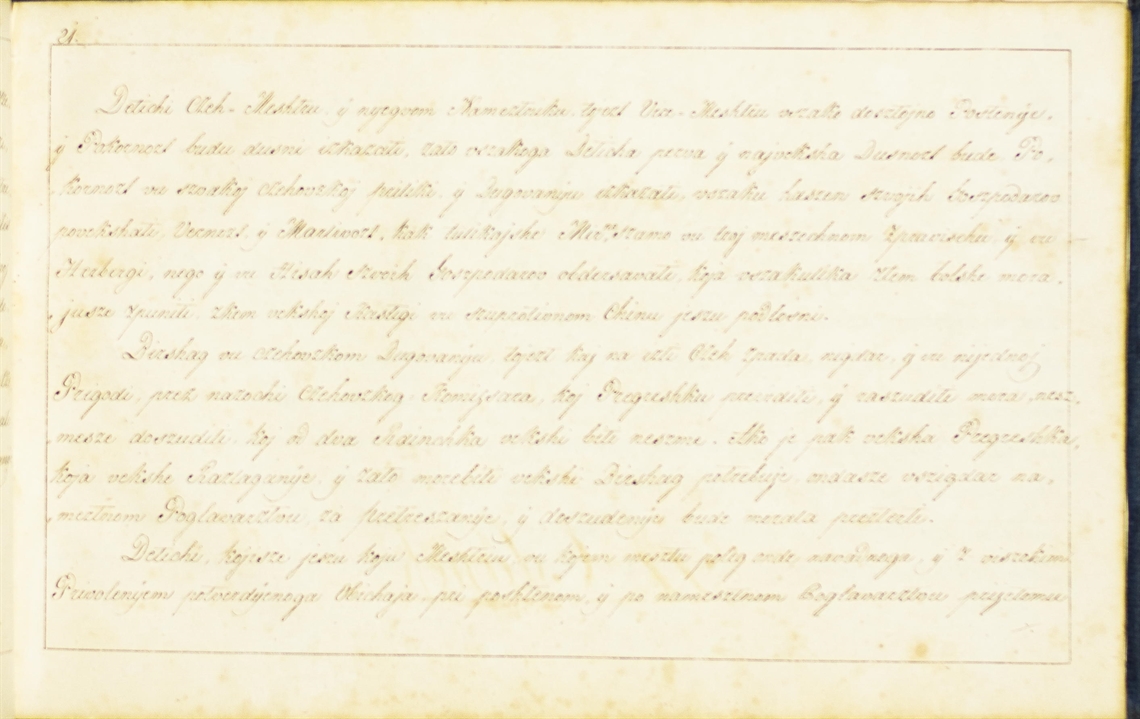 21.
Detichi Czeh-Meshtru, ÿ nyegvom Namesztniku, tojezt Vice-Meshtru vszako dosztojno Postenÿe,
ÿ Pokornozt budu dusni izkazati, zato vszakoga Deticha perva ÿ najvekska Dusnozt bude Po-
kornozt vu szvakoj czehovzkoj priliki, ÿ Dugovanÿu izkazati, vszaku haszen szvojih Gozpodarov
povekshati, Vernozt, ÿ Marlivozt, kak tulikajshe Mir szamo vu toj meszechnom Zpravischu, ÿ vu
Herbergi, nego ÿ vu Hisah szvoih Gozpodarov obdersavati, koja vszakulika Zlem bolshe mora,
jusze zpuniti, zkem vekshoj Kastigi vu szuprotivnom Chinu jeszu podlosni.
Birshag vu czehovzkom Dugovanÿu, tojezt kaj na izti Czeh zpada, nigdar, ÿ vu nijednoj
Prigodi, prez nazochi czehovzkog Komissara, koj Pregreshku previditi, ÿ razsuditi mora, nesz-
mesze doszuditi, koj od dva Rdinchka vekshi biti neszme. Ako je pak veksha Pregreshka,
koja vekshe Razlaganÿe, ÿ zato morebiti vekshi Birshag potrebuje, ondasze vszigdar na-
mesztnom Poglavarztvu, za pretreszanÿe, ÿ doszudenÿe bude morala prezteti.
Detichi, kojisze jeszu koju Meshtriu, vu kojem mesztu poleg onde navadnoga, ÿ z viszekim
Privolenÿem potverdÿenoga Obichaja, pri poshtenom, ÿ po namesztnom Poglavarztvu prijetomu